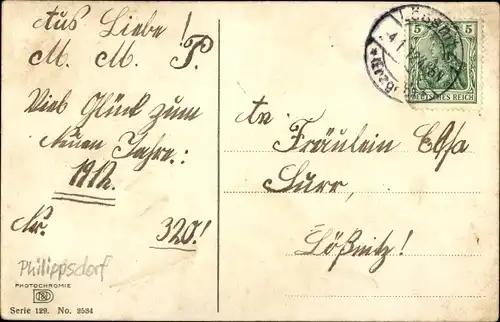 Aus Liebe!
M. M. P.
Viel Glück zum
Neuen Jahre.:
1912.
Nr. 320!
Philippsdorf
PHOTOCHROMIE
Serie 129. No. 2534
5 5
DEUTSCHES REICH
An
Fräulein Elsa
Surr,
Lößnitz!